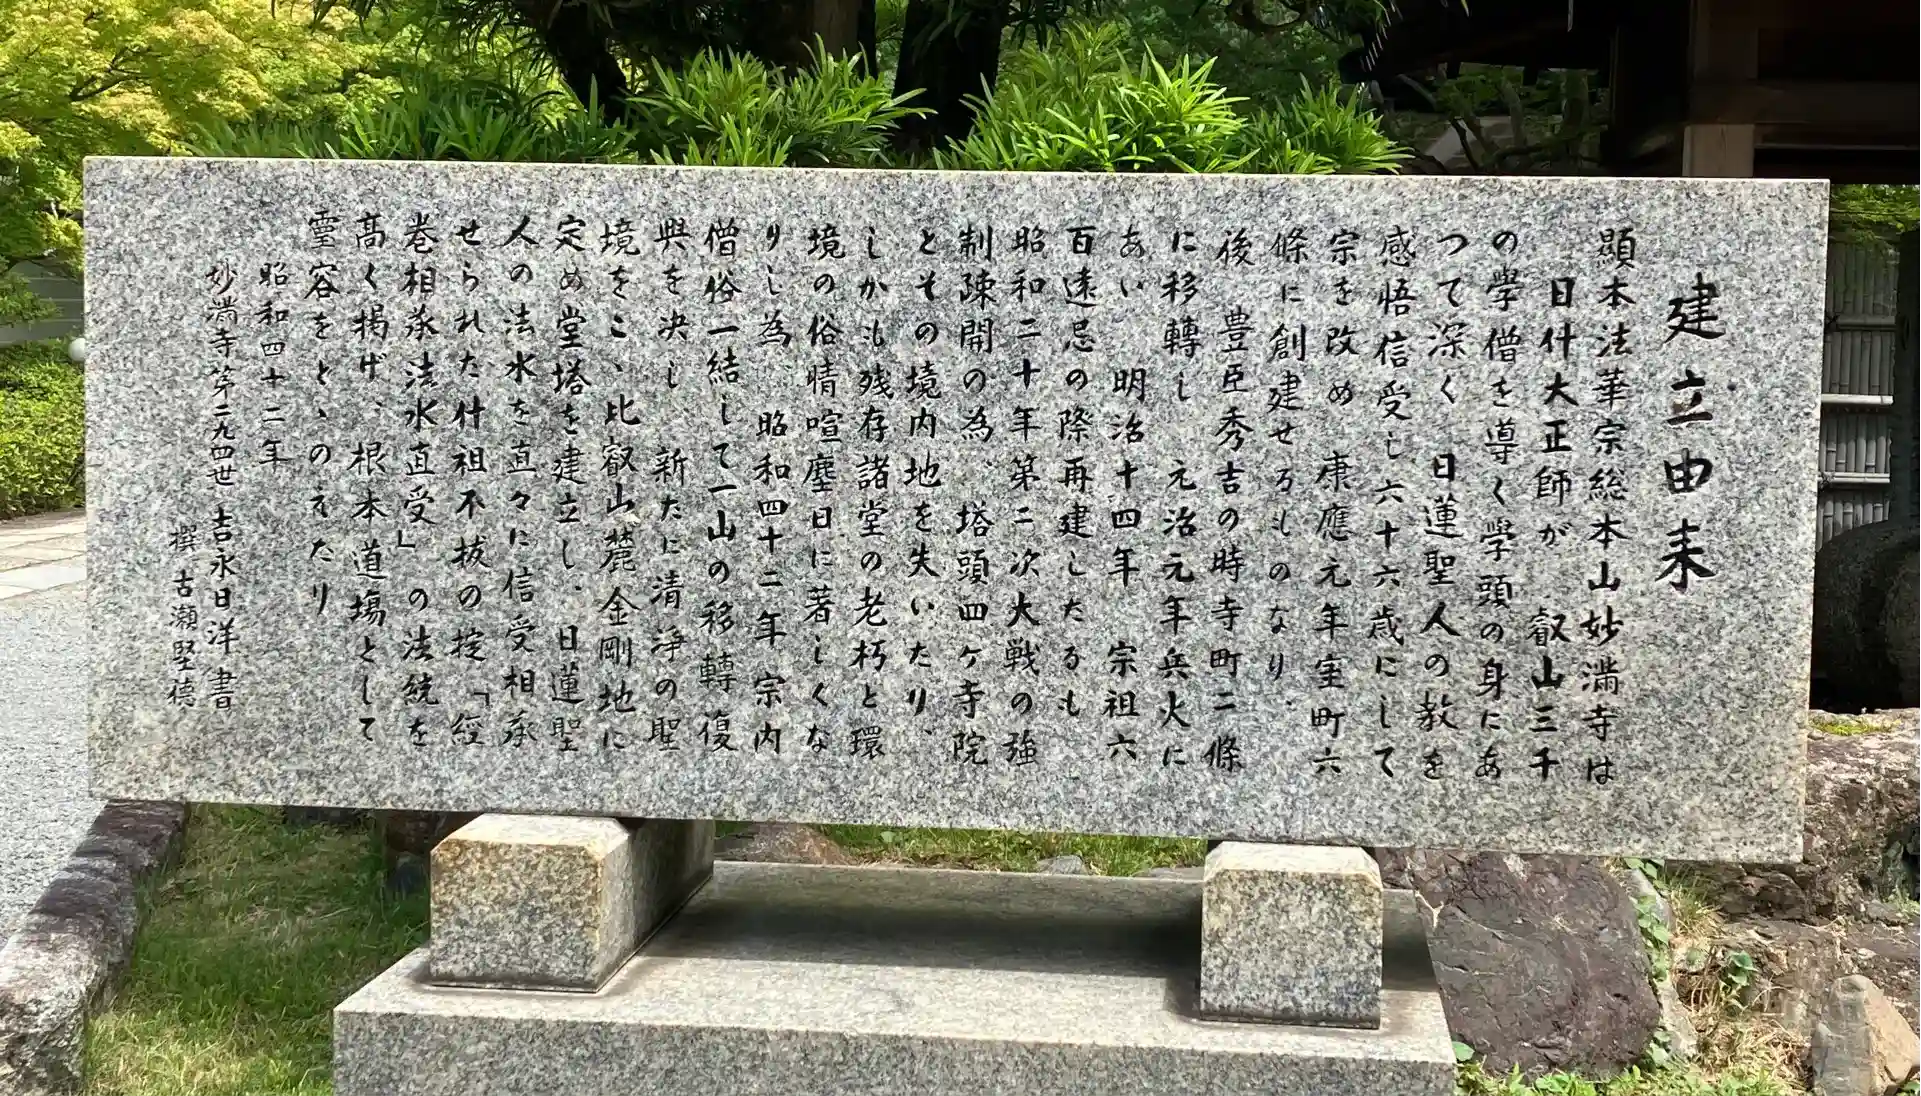 建立由来
顯本法華宗総本山妙満寺は
日什大正師が 叡山三千
の學僧を導く學頭の身にあ
つて深く 日蓮聖人の教を
感悟信受し六十六歳にして
宗を改め 康應元年室町六
條に創建せるものなり.
後 豊臣秀吉の時寺町二條
に移轉し 元治元年兵火に
あい 明治十四年 宗祖六
百遠忌の際再建したるも
昭和二十年第二次大戦の強
制疎開の為、塔頭四ケ寺院
とその境内地を失いたり、
しかも残存諸堂の老朽と環
境の俗情喧塵日に著しくな
りし為、昭和四十二年宗内
僧俗一結して一山の移轉復
興を決し 新たに清浄の聖
境をこゝ比叡山麓金剛地に
定め堂塔を建立し、日蓮聖
人の法水を直々に信受相承
せられた什祖不抜の掟「經
巻相承法水直受」の法統を
髙く掲げ、根本道場として
霊容をとゝのえたり
昭和四十二年
妙満寺第二九四世 吉永日洋 書
撰 古瀬堅德